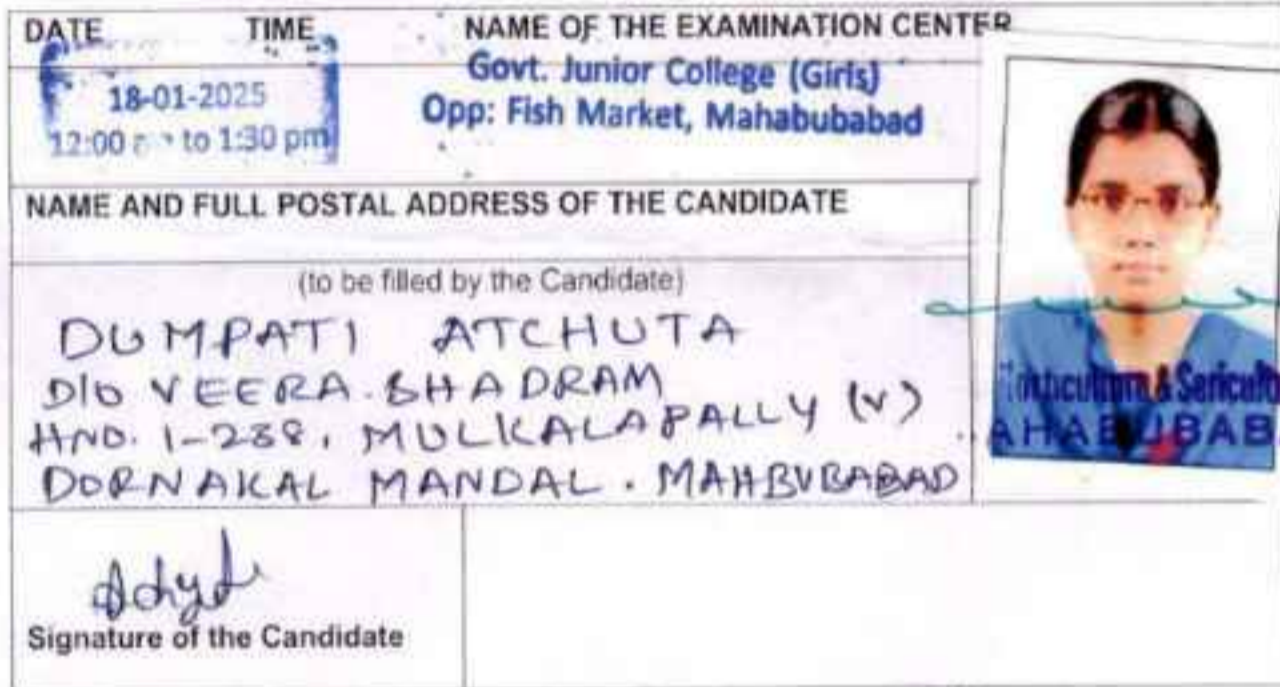 DATE TIME NAME OF THE EXAMINATION CENTER
18-01-2025
12:00 to 1:30 pm
Govt. Junior College (Girls)
Opp: Fish Market, Mahabubabad
NAME AND FULL POSTAL ADDRESS OF THE CANDIDATE
(to be filled by the Candidate)
DUMPATI ATCHUTA
D/O VEERA.BHADRAM
HNO. 1-238, MULKALAPALLY (V)
DORNAKAL MANDAL. MAHBUBABAD
& Sericult
AHABUBAB
Signature of the Candidate